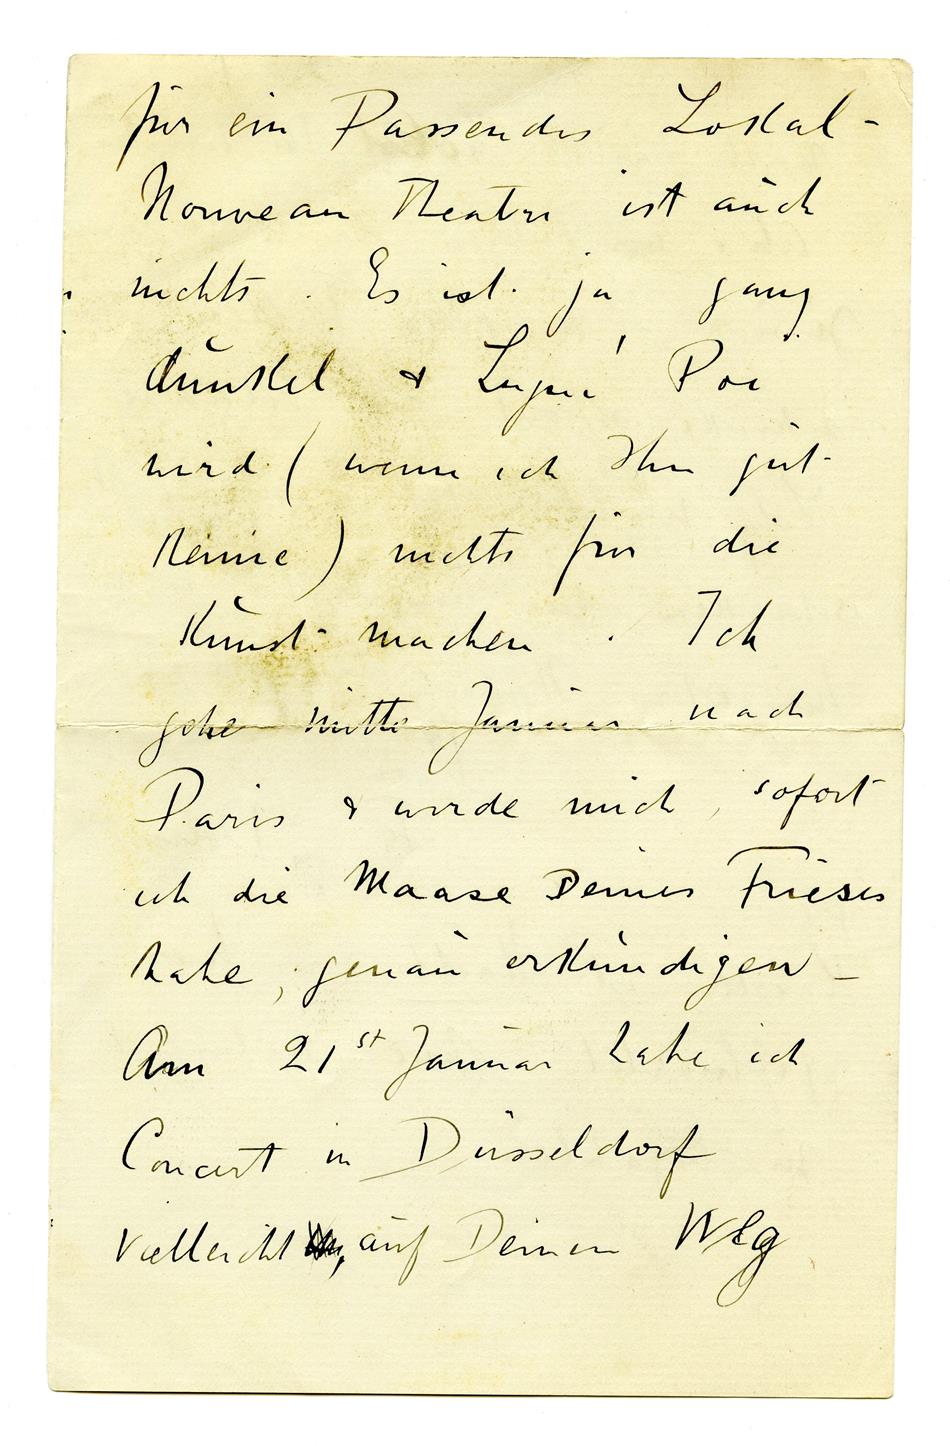 für ein Passendes Lokal -
Nouveau Theatre ist auch
nichts . Es ist ja ganz
dunkel & Lugné Poë
wird ( wenn ich Ihn gut
kenne ) nichts für die
Kunst machen . Ich
gehe mitte Januar nach
Paris & werde mich , sofort
ich die Maase Deines Frieses
habe , genau erkundigen _
Am 21st Januar habe ich
Concert in Düsseldorf
Vielleicht auf Deinem Weg